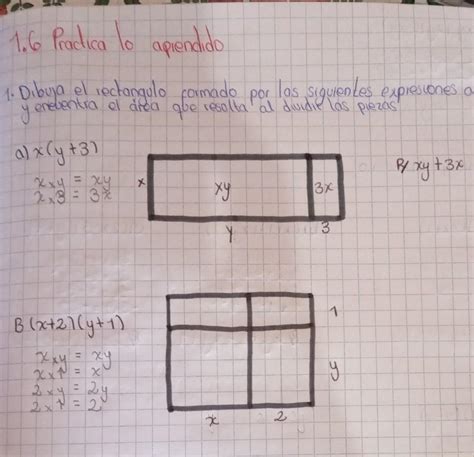 1.6 Practica lo aprendido
1. Dibuja el rectangulo formado por las siguientes expresiones a
y encuentra el área que resulta al dividir las piezas
a) x(y+3)
R/ xy + 3x
x x y = xy
x x 3 = 3x
x
xy
3x
y
3
B (x+2)(y+1)
1
x x y = xy
x x 1 = x
2 x y = 2y
2 x 1 = 2
y
x
2